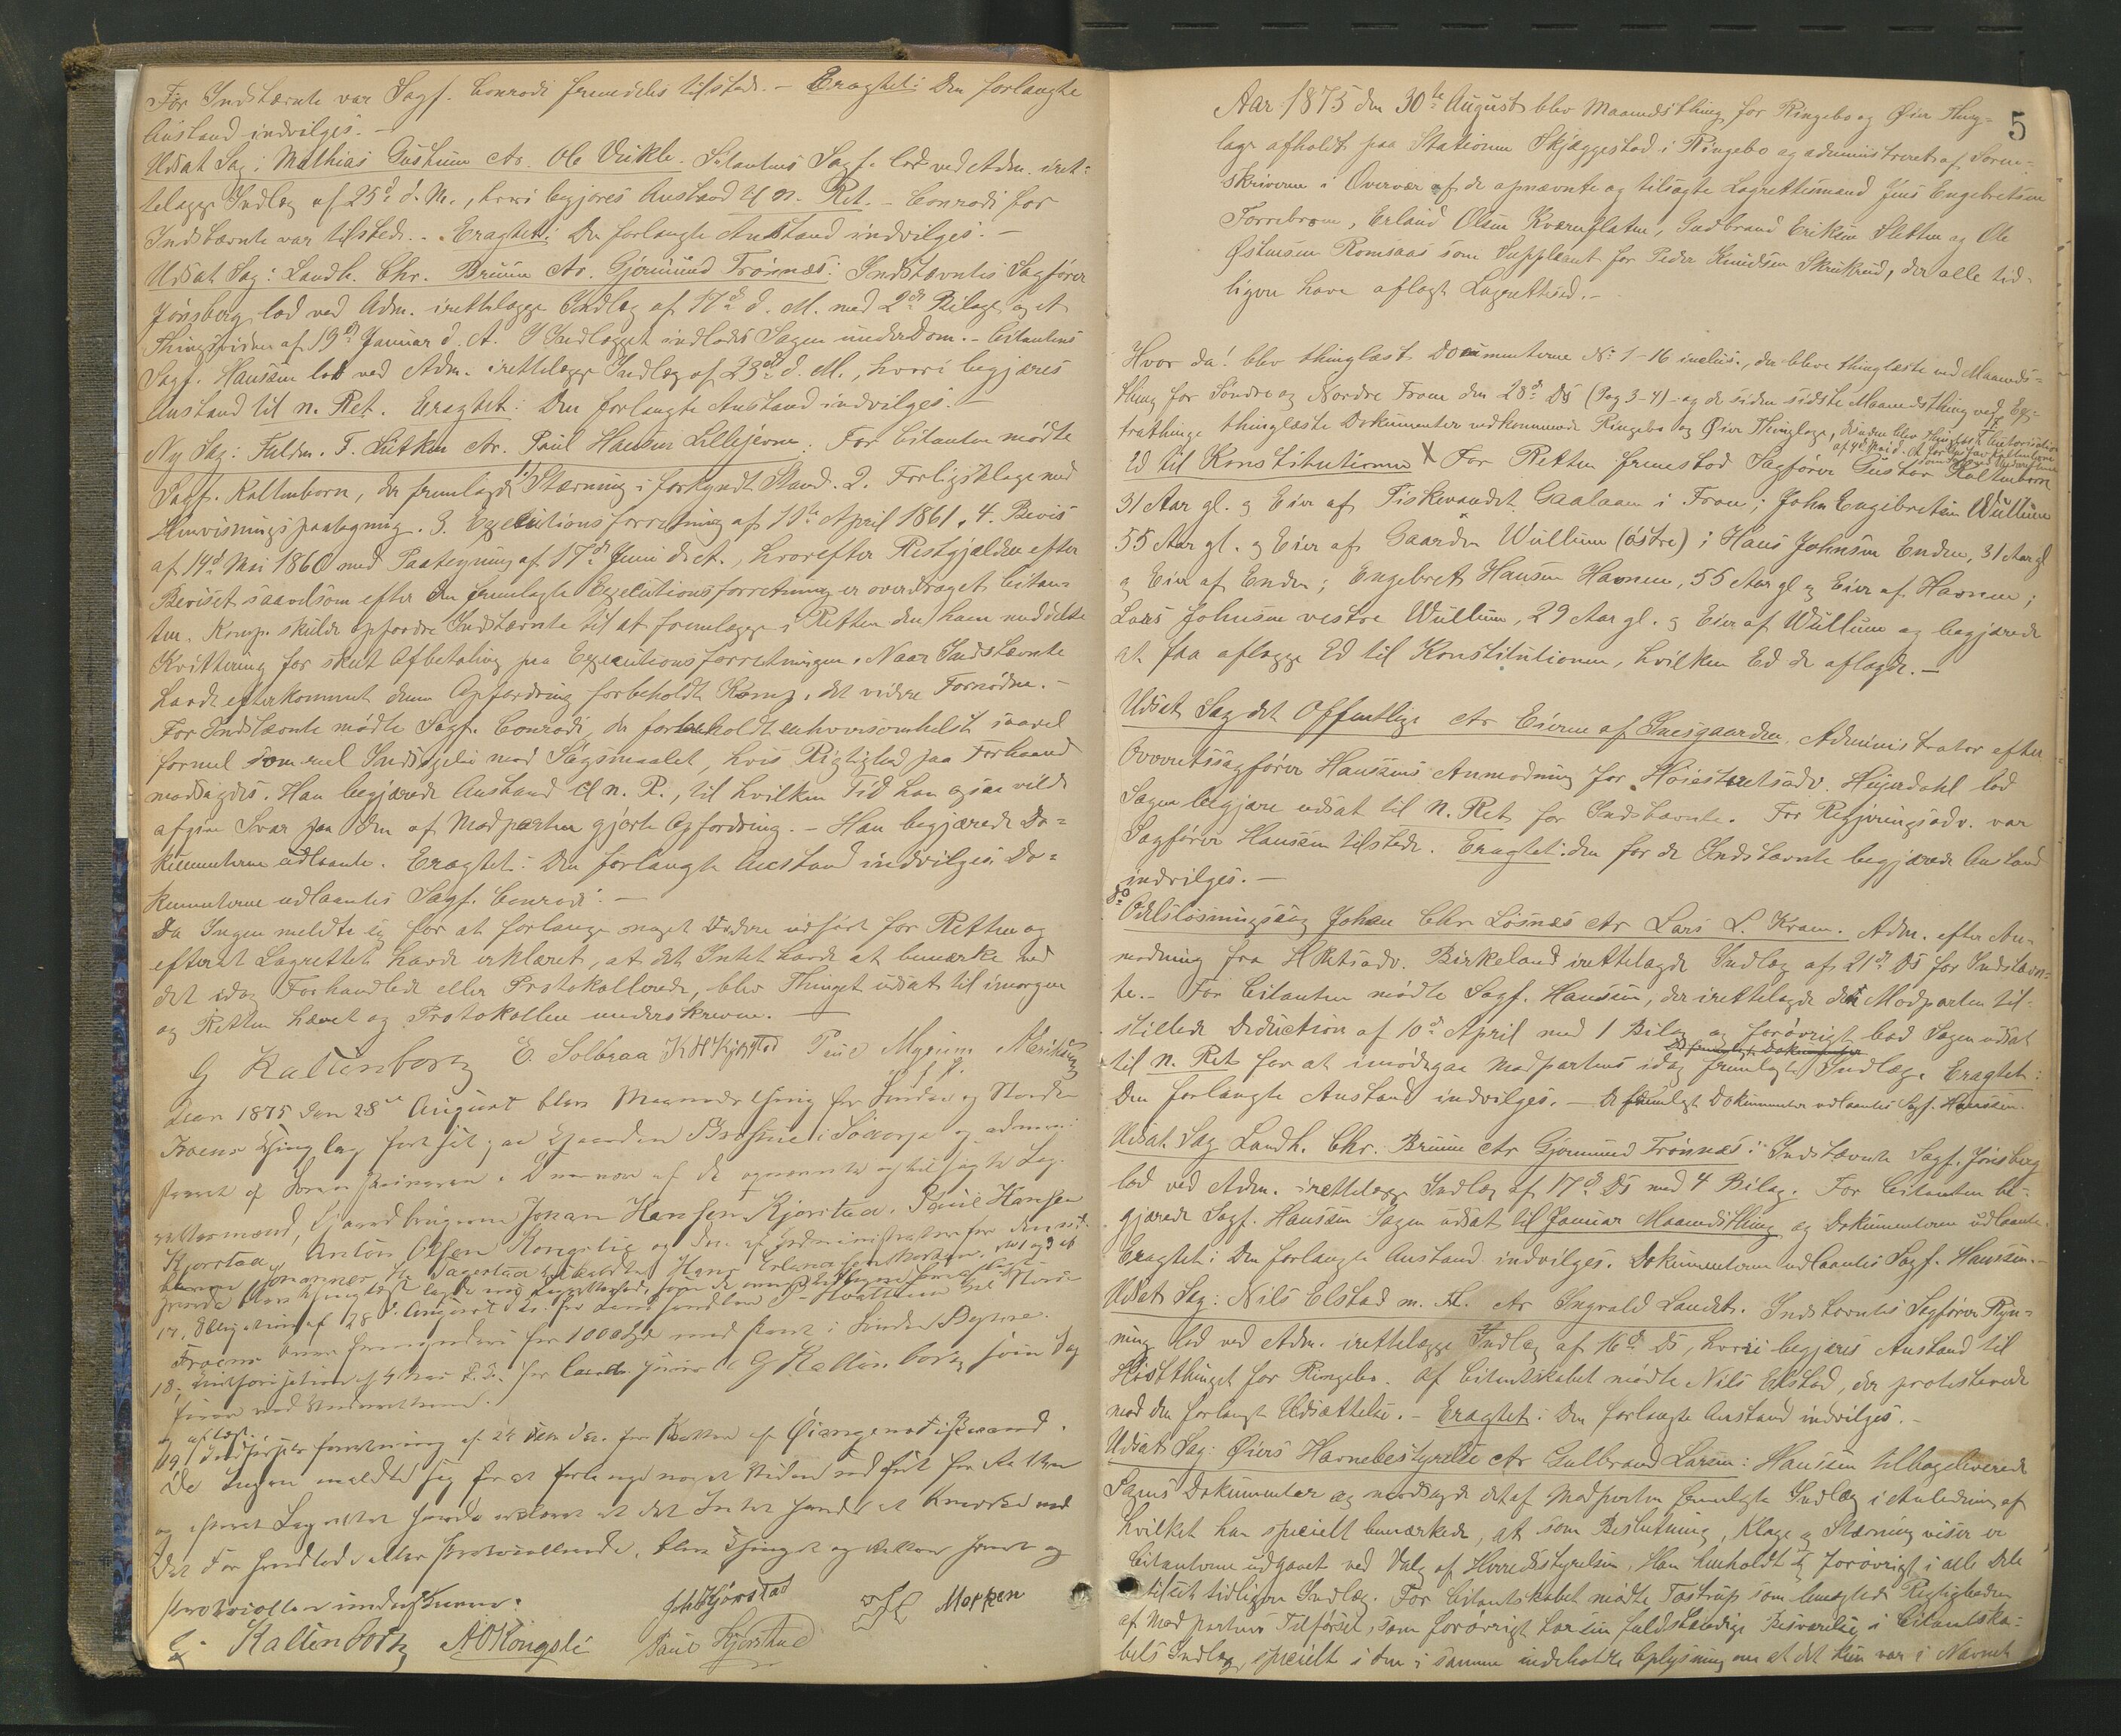 For Indstævnte var Sagf. Conradi fremdeles tilstede. – Eragtet: Den forlangte
Anstand indvilges. –
Udsat Sag: Mathias Gustum Ctr. Ole Vekle. Citantens Sagf. lod ved Adm. iret-
telægge Indlæg af 25d d. M., hvori begjæres Anstand til n. Ret. – Conradi for
Indstævnte var tilstede. – Eragtet: Den forlangte Anstand indvilges. –
Udsat Sag: Landh. Chr. Bruun Ctr. Gjormund Trønnæs: Indstævntes Sagfører
Jønsberg lod ved Adm. irettelægge Indlæg af 17de d. M. med 2de Bilage og et
Thingsvidne af 19de Januar d. A. I Indlægget indlodes Sagen under Dom. – Citantens
Sagf. Hanssen lod ved Adm. irettelægge Indlæg af 23de d. M., hvori begjæres
Anstand til n. Ret. Eragtet: Den forlangte Anstand indvilges. –
Ny Sag: Fuldm. F. Lütken Ctr. Paul Hansen Lillejevne. For Citanten mødte
Sagf. Kaltenborn, der fremlagde 1.) Stævning i forkyndt Stand. 2. Forligsklage med
Henvisningspaategning. 3. Executionsforretning af 10de April 1861. 4. Bevis
af 14d Mai 1860 med Paategning af 17de Juni d. A., hvorefter Restgjælden efter
Beviset saavelsom efter den fremlagte Executionsforretning er overdraget Citan-
ten. Komp. skulde opfordre Indstævnte til at fremlægge i Retten den ham meddelte
Kvittering for skeet Afbetaling paa Executionsforretningen. Naar Indstævnte
havde efterkommet denne Opfordring forbeholdt Komp. det videre Fornødne. –
For Indstævnte mødte Sagf. Conradi, der forbeholdt enhversomhelst saavel
formel som reel Indsigelse mod Søgsmaalet, hvis Rigtighed paa Forhaand
modsagdes. Han begjærede Anstand til n. R., til hvilken Tid han ogsaa vilde
afgive Svar paa den af Modparten gjorte Opfordring. – Han begjærede Do-
kumenterne udlaante. Eragtet: Den forlangte Anstand indvilges. Do-
kumenterne udlaantes Sagf. Conradi. –
Da Ingen meldte sig for at forlange noget Videre udført for Retten og
efterat Lagrettet havde erklæret, at det Intet havde at bemærke ved
det idag Forhandlede eller Protokollerede, blev Thinget udsat til imorgen
og Retten hævet og Protokollen underskreven. –
G Kaltenborn E. Solbraa K H Kjørstad
Aar 1875 den 28de August blev Maanedsthing for Søndre og Nordre
Froens Thinglag fortsat paa Gaarden i Sødorp og admini-
streret af Sorenskriveren i Overvær af de opnævnte og tilsagte Lag-
rettesmænd, Gaardbrugerne Johan Hansen Kjørstad, Paul Hansen
Kjørstad, Anton Olsen Kongslie og den af Administrator for den
17, Obligation af 28d August
Froens for 1000 Spd med Pant i Søndre
18, Authorisation af 4 Mai for G Kaltenborn som Sag
fører ved Underretterne.
og aflæst.
19,
Da Ingen meldte sig for at forlange noget Videre udført for Retten
og efterat Lagrettet havde erklæret at det Intet havde at bemærke ved
det Forhandlede eller Protocollerede, blev Thinget og Retten hævet og
Protocollen underskreven.
G. Kaltenborn A O Kongsli Paul Kjørstad J H Kjørstad Moppen
5
Aar 1875 den 30te August blev Maanedsthing for Ringebo og Øier Thing-
lage afholdt paa Stationen Skjæggestad i Ringebo og administreret af Soren-
skriveren i Overvær af de opnævnte og tilsagte Lagrettesmænd Jens Engebretsen
Forrebroen, Erland Olsen Kværnflaten, Gudbrand Eriksen Sletten og Ole
Østensen Romsaas som Suppleant for Peder Knudsen Skrukrud, der alle tid-
ligere have aflagt Lagretteed. –
Hvor da! blev thinglæst Documenterne No 1–16 inclus., der bleve thinglæste ved Maaneds-
thing for Søndre og Nordre Fron den 28d Ds (Pag 3–4) og de siden sidste Maanedsthing ved Ex-
trathinge thinglæste Dokumenter vedkommende Ringebo og Øier Thinglage, desuden blev thinglæst Authorisation
af 4d Mai d. A. for Gustav Kaltenborn
som Sagf. ved Underretterne
Ed til Konstitutionen X For Retten fremstod Sagfører Gustav Kaltenborn
31 Aar gl. og Eier af Fiskevandet Gaalaaen i Fron; John Engebretsen Wullum
55 Aar gl. og Eier af Gaarden Wullum (østre); Hans Johnsen Enden, 31 Aar gl
og Eier af Enden; Engebret Hansen Havnen, 55 Aar gl og Eier af Havnen;
Lars Johnsen vestre Wullum, 29 Aar gl. og Eier af Wullum og begjærede
at faa aflægge Ed til Konstitutionen, hvilken Ed de aflagde. –
Udsat Sag det Offentlige Ctr Eierne af Snesgaarden. Administrator efter
Overretssagfører Hanssens Anmodning for Høiesteretsadv. Heijerdahl lod
Sagen begjære udsat til n. Ret for Indstævnte. For Regjeringsadv. var
Sagfører Hanssen tilstede. Eragtet: den for de Indstævnte begjærede Anstand
indvilges. –
do Odelsløsningssag Johan Chr Løsnæs Ctr Lars L. Kram. Adm. efter An-
modning fra H Retsadv. Birkeland irettelagde Indlæg af 21de Ds for Indstævn-
te. – For Citanten mødte Sagf. Hanssen, der irettelagde den Modparten til-
stillede Deduction af 10de April med 1 Bilag og forøvrigt bad Sagen udsat
til n. Ret for at imødegaa Modpartens idag fremlagte Indlæg. Eragtet:
Den forlangte Anstand indvilges. – De fremlagte Dokumenter udlaantes Sagf. Hanssen.
Udsat Sag Landh. Chr. Bruun Ctr Gjormund Trønnæs: Indstævnte Sagf. Jønsberg
lod ved Adm. irettelægge Indlæg af 17d Ds med 4 Bilag. For Citanten be-
gjærede Sagf. Hanssen Sagen udsat til Januar Maanedsthing og Dokumenterne udlaante.
Eragtet: Den forlangte Anstand indvilges. Dokumenterne udlaantes Sagf. Hanssen. –
Udsat Sag: Nils Elstad m. Fl. Ctr Ingvald Landet. Indstævntes Sagfører Ryn-
ning lod ved Adm. irettelægge Indlæg af 16de Ds, hvori begjæres Anstand til
Høstthinget for Ringebo. Af Citantskabet mødte Nils Elstad, der protesterede
mod den forlangte Udsættelse. – Eragtet: Den forlangte Anstand indvilges. –
Udsat Sag: Øiers Havnebestyrelse Ctr Gulbrand Larsen: Hanssen tilbageleverede
Sagens Dokumenter og modsagde det af Modparten fremlagte Indlæg i Anledning af
hvilket han specielt bemærkede, at som Beslutning, Klage og Stævning viser er
Citanterne udgaaet ved Valg af Herredsstyrelsen. Han henholdt sig forøvrigt i alle Dele
til sit tidligere Indlæg. For Citantskabet mødte Tostrup som benægtede Rigtigheden
af Modpartens Tilførsel, som forøvrigt har sin fuldstændige Besvarelse i Citantska-
bets Indlæg, specielt i den i samme indeholdte Oplysning om at det kun var i Navnet